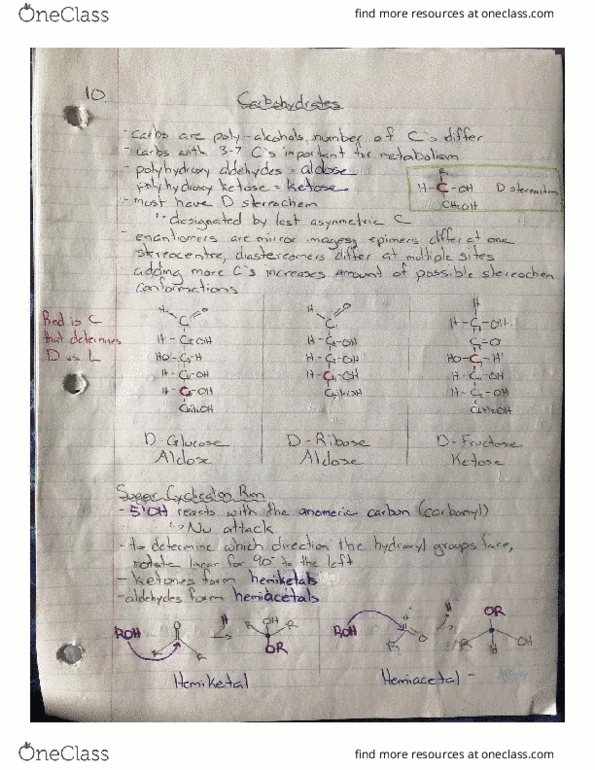 OneClass
find more resources at oneclass.com
10.
Carbohydrates
- carbs are poly-alcohols, number of C's differ
- carbs with 3-7 C's important for metabolism
- polyhydroxy aldehydes = aldose
polyhydroxy ketose = ketose
- most have D sterochem
↳ designated by last asymmetric C
R
H-C-OH D stereochem
CH2OH
- enantiomers are mirror images, epimers differ at one
stereocentre, diastereomers differ at multiple sites
adding more C's increases amount of possible stereochem
conformations
Red is C
that determines
D vs L
H O H O H
C C H-C-OH
H-C-OH H-C-OH C=O
HO-C-H H-C-OH HO-C-H
H-C-OH H-C-OH H-C-OH
H-C-OH CH2OH H-C-OH
CH2OH CH2OH
D-Glucose D-Ribose D-Fructose
Aldose Aldose Ketose
Sugar Rxn
- 5'OH reacts with the anomeric carbon (carbonyl)
↳ Nu attack
- to determine which direction the hydroxyl groups face,
rotate linear for 90° to the left
- ketones form hemiketals
- aldehydes form hemiacetals
ROH O R R H OH R R OR
ROH H O R H OR R H OH
Hemiketal Hemiacetal
OneClass
find more resources at oneclass.com